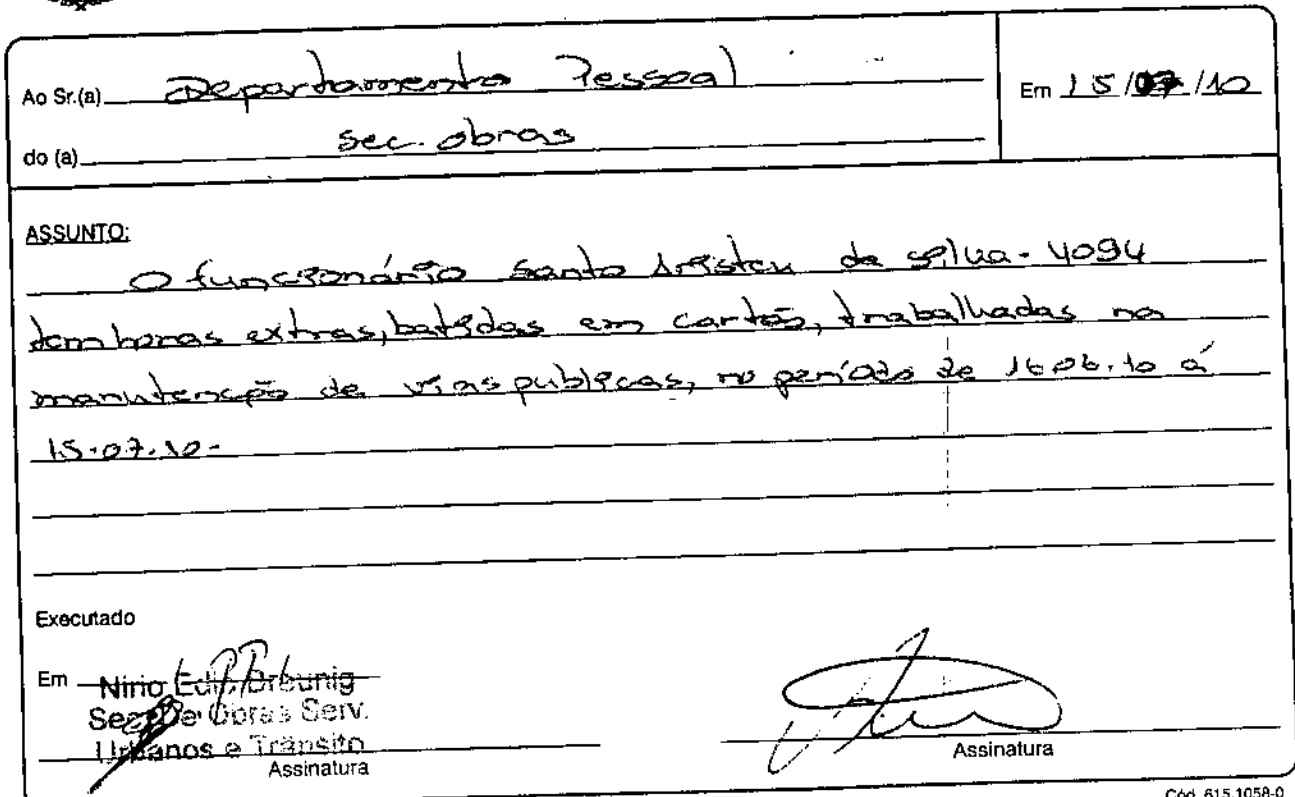 Ao Sr.(a) Departamento Pessoal
Em 15/07/10
do (a) Sec. obras
ASSUNTO:
O funcionário Santo Aristeu da Silva - 4094
tem horas extras, batidas em cartão, trabalhadas na
manutenção de vias publicas, no período de 16.06.10 á
15.07.10-
Executado
Em
Nirio
Sec. De Obras Serv.
Urbanos e Trânsito
Assinatura
Assinatura
Cód. 615.1058-0